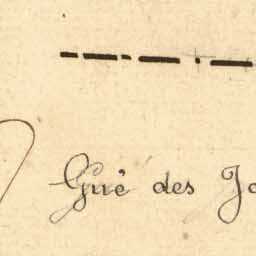 Gué des Jo